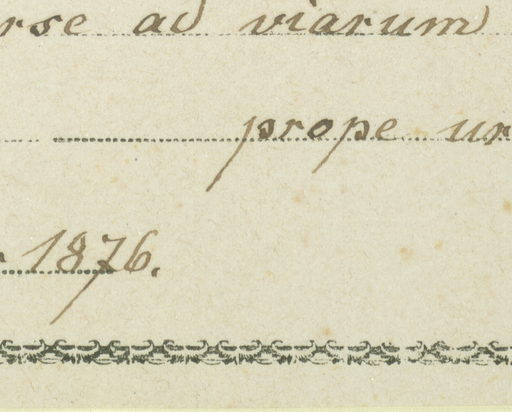 rse ad viarum
prope ur
1876.